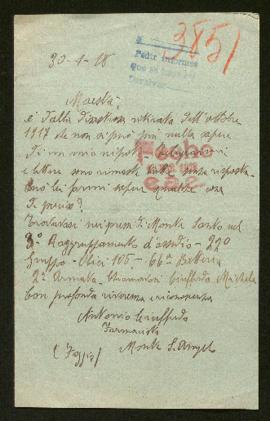 3851
Pedir informes
30-1-18
Maestà
è dalla disastrosa ritirata dell'ottobre
1917 che non si può più nulla sapere
di un mio nipote
e lettere sono rimaste tutte senza risposta.
può lei farmi sapere qualche cosa
di preciso?
Trovavasi nei pressi di Monte Santo nel
8° Raggruppamento d'assedio - 22°
Gruppo - Obici 105 - 66a Batteria
2a Armata - Chiamasi Ciuffreda Michele
Con profonda riverenza e riconoscenza
Antonio Ciuffreda
Farmacista
(Foggia) Monte S. Angelo